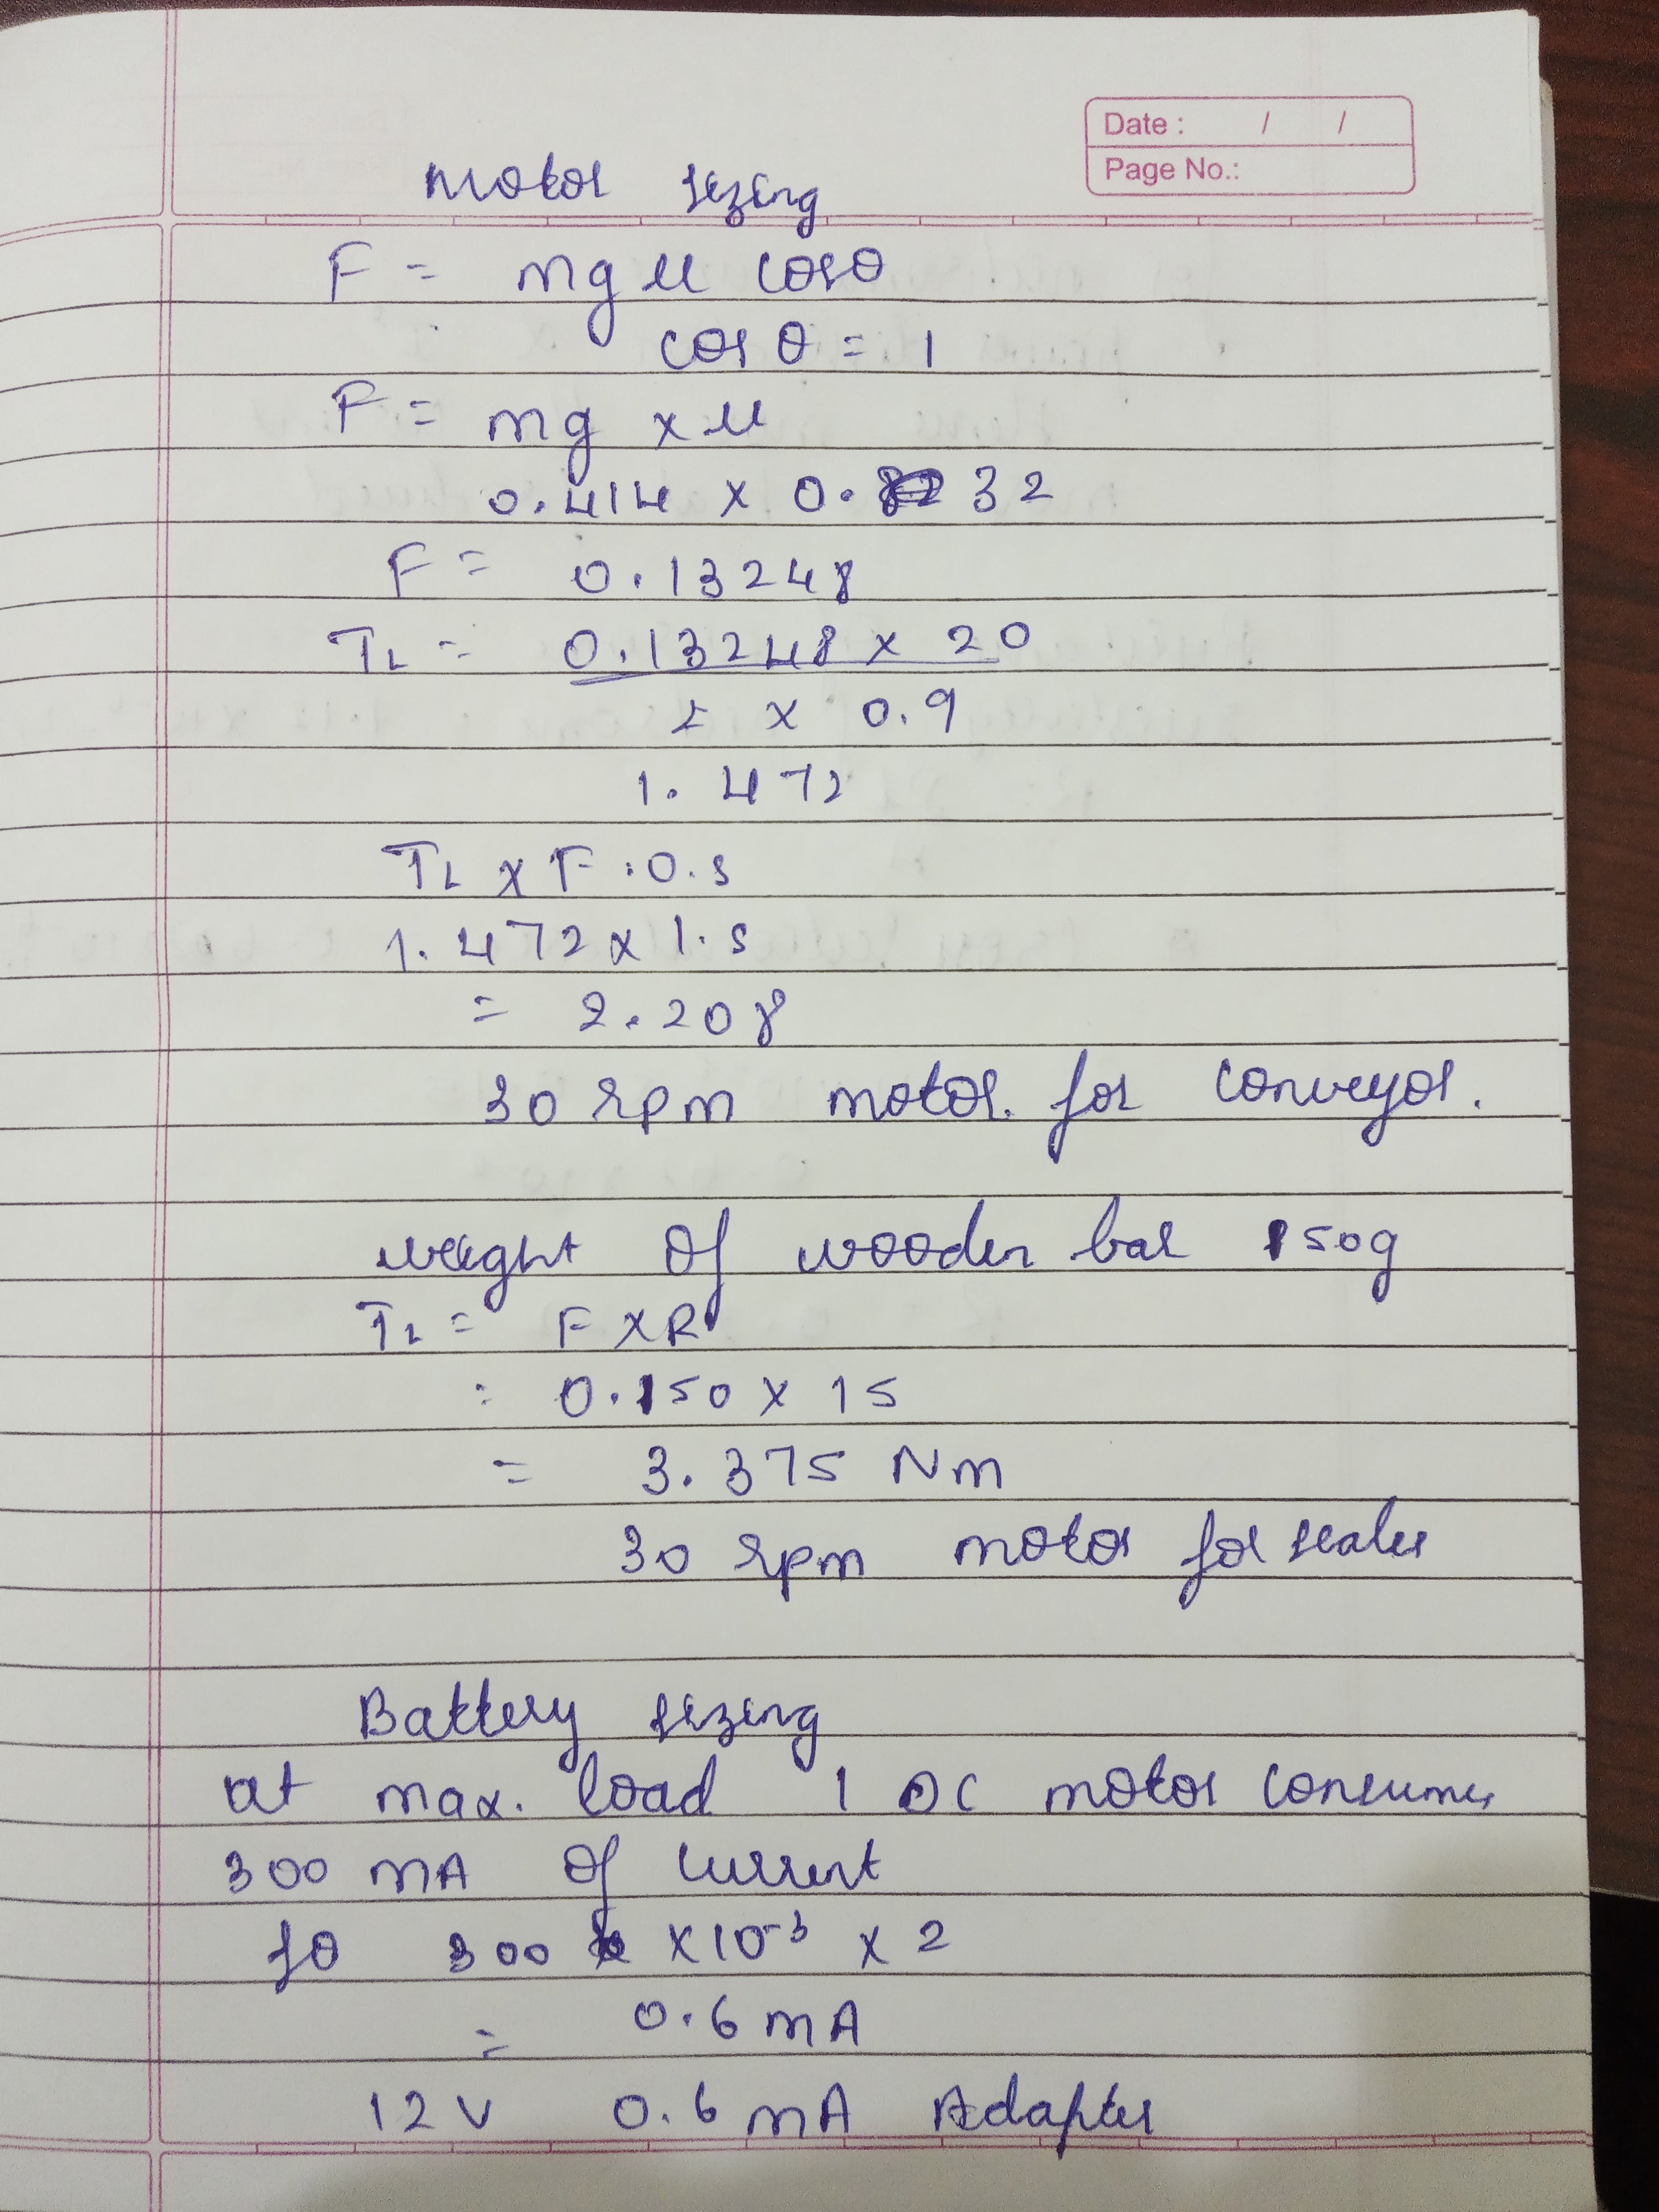 Date : / /
Page No.:
Motor sizing
F = mg μ cosθ
cos θ = 1
F = mg x μ
0.414 x 0. 32
F = 0.13248
TL = 0.13248 x 20
2 x 0.9
1.472
TL x F.O.S
1.472 x 1.5
= 2.208
30 rpm motor for conveyor.
weight of wooden bar 150g
TL = F x R
= 0.150 x 15
= 3.375 Nm
30 rpm motor for sealer
Battery sizing
at max. load 1 DC motor consumes
300 mA of current
so 300 x 10-3 x 2
= 0.6 mA
12 V 0.6 mA Adapter